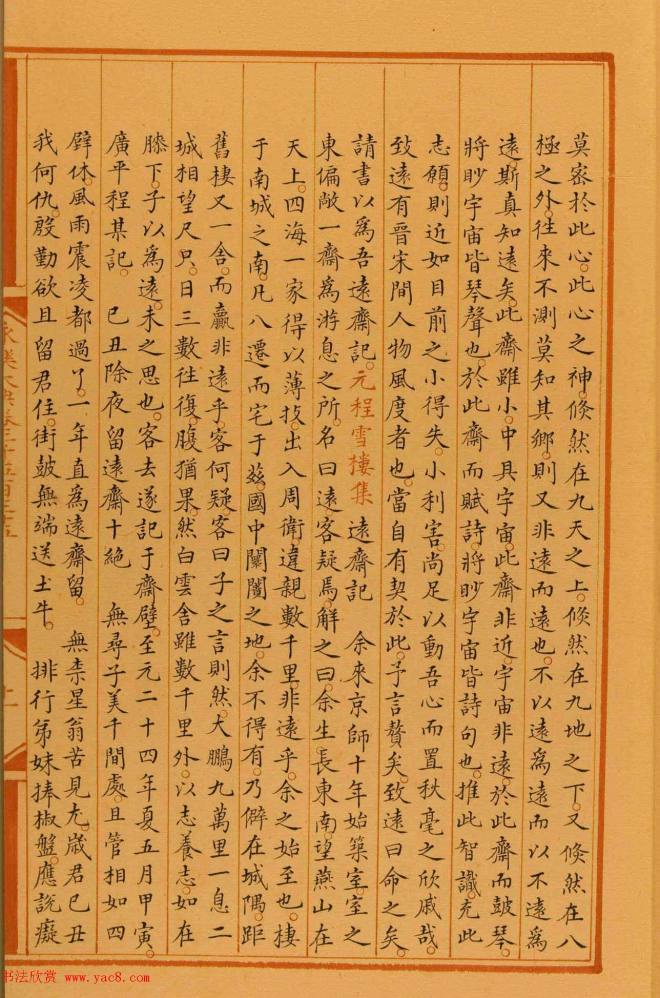 莫宻於此心。此心之神。倐然在九天之上。倐然在九地之下。又倐然在八
極之外。徃來不測。莫知其鄉。則又非遠而遠也。不以遠爲遠。而以不遠爲
遠。斯真知遠矣。此齋雖小。中具宇宙。此齋非近。宇宙非遠。於此齋而皷琴。
將眇宇宙皆琴聲也。於此齋而賦詩。將眇宇宙皆詩句也。推此智識。充此
志願。則近如目前之小得失。小利害。尚足以動吾心而置秋毫之欣戚哉。
致遠有晉宋間人物風度者也。當自有契於此。予言贅矣。致遠曰命之矣。
請書以爲吾遠齋記。元程雪樓集 遠齋記 余來京師十年。始築室。室之
東偏敞一齋爲游息之所。名曰遠。客疑焉。解之曰。余生長東南。望燕山在
天上。四海一家。得以薄技。出入周衛。違親數千里。非遠乎。余之始至也。棲
于南城之南。凡八遷而宅于兹。國中闤闠之地。余不得有。乃僻在城隅。距
舊棲又一舍。而贏非遠乎。客何疑。客曰子之言則然。大鵬九萬里一息。二
城相望尺只。日三數徃復。腹猶果然。白雲舍雖數千里外。以志養志。如在
膝下。子以爲遠。未之思也。客去遂記于齋壁。至元二十四年夏五月甲寅。
廣平程某記。 已丑除夜留遠齋十絶 無尋子美千間處。且管相如四
壁休。風雨震凌都過了。一年直爲遠齋留。 無柰星翁苦見尤。歲君已丑
我何仇。殷勤欲且留君住。街皷無端送土牛。 排行弟妹捧椒盤。應說癡
書法欣赏 www.yac8.com